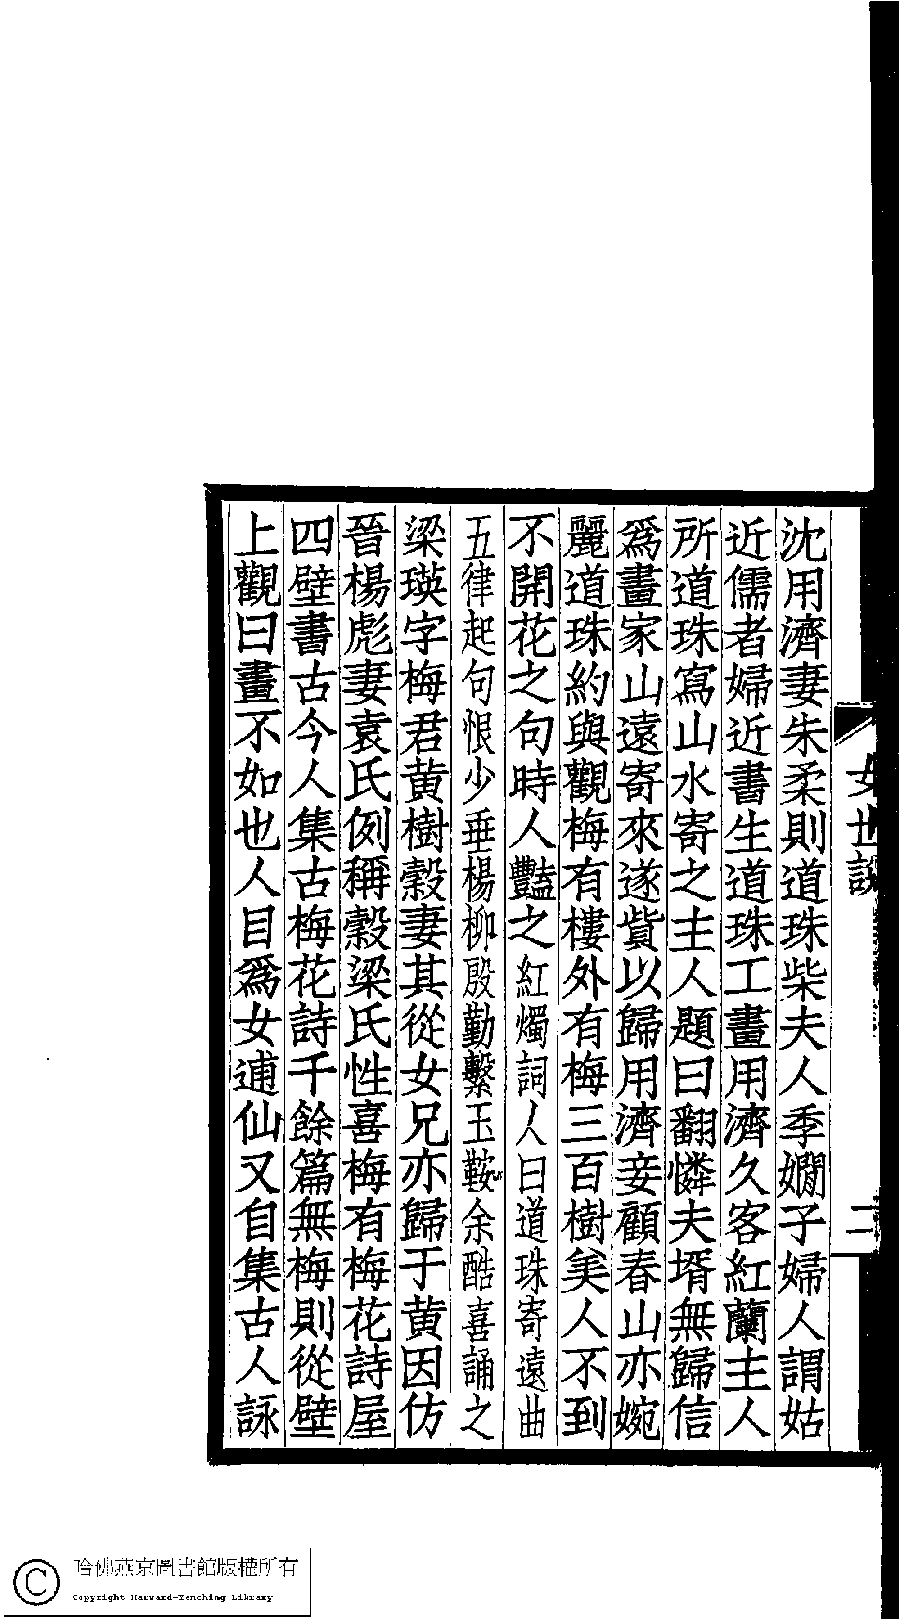 女世説
二
沈用濟妻朱柔則道珠柴夫人季嫺子婦人謂姑
近儒者婦近書生道珠工畫用濟久客紅蘭主人
所道珠寫山水寄之主人題曰翻憐夫壻無歸信
爲畫家山遠寄來遂貲以歸用濟妾顧春山亦婉
麗道珠約與觀梅有樓外有梅三百樹矣人不到
不開花之句時人豔之紅燭詞人曰道珠寄遠曲
五律起句恨少垂楊柳殷勤繫玉鞍余酷喜誦之
梁瑛字梅君黄樹縠妻其從女兄亦歸于黄因仿
晉楊彪妻袁氏例稱縠梁氏性喜梅有梅花詩屋
四壁書古今人集古梅花詩千餘篇無梅則從壁
上觀曰畫不如也人目爲女逋仙又自集古人詠
哈佛燕京圖書館版權所有
Copyright Harvard-Yenching Library